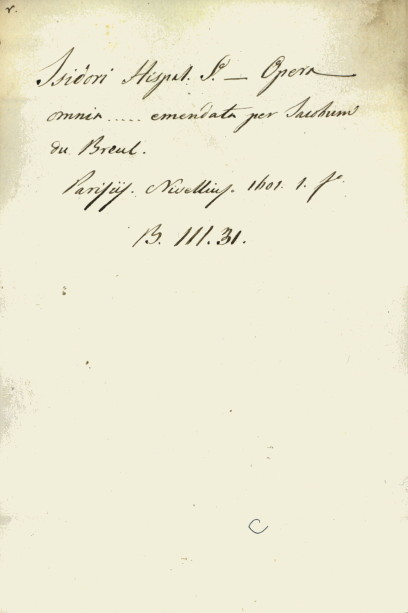 r.
Isidori Hispal. Sti — Opera
omnia ..... emendata per Jacobum
du Breul.
Parisijs. Nivellius. 1601. 1. fo.
B. III. 31.
C